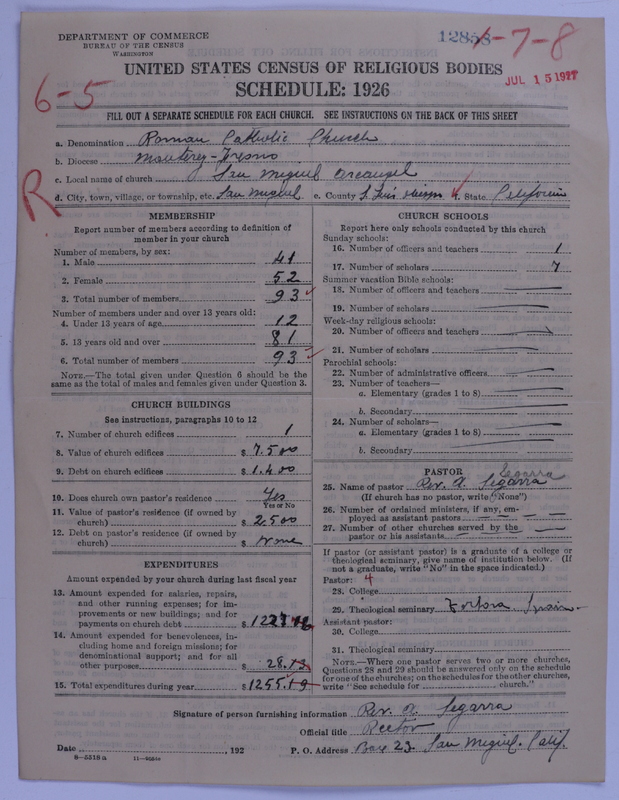 DEPARTMENT OF COMMERCE
BUREAU OF THE CENSUS
WASHINGTON
7-8
JUL 15 1927
UNITED STATES CENSUS OF RELIGIOUS BODIES
SCHEDULE: 1926
6-5
FILL OUT A SEPARATE SCHEDULE FOR EACH CHURCH. SEE INSTRUCTIONS ON THE BACK OF THIS SHEET
a. Denomination Roman Catholic Church
b. Diocese Monterey-Fresno
c. Local name of church San Miguel Arcangel
d. City, town, village, or township, etc. San Miguel e. County S. Luis Obispo f. State California
R
MEMBERSHIP
Report number of members according to definition of member in your church
Number of members, by sex:
1. Male 41
2. Female 52
3. Total number of members 93
Number of members under and over 13 years old:
4. Under 13 years of age 12
5. 13 years old and over 81
6. Total number of members 93
NOTE.—The total given under Question 6 should be the same as the total of males and females given under Question 3.
CHURCH BUILDINGS
See instructions, paragraphs 10 to 12
7. Number of church edifices 1
8. Value of church edifices $ 7.500
9. Debt on church edifices $ 1.400
10. Does church own pastor's residence Yes
Yes or No
11. Value of pastor's residence (if owned by church) $ 2.500
12. Debt on pastor's residence (if owned by church) $ None
EXPENDITURES
Amount expended by your church during last fiscal year
13. Amount expended for salaries, repairs, and other running expenses; for improvements or new buildings; and for payments on church debt $
14. Amount expended for benevolences, including home and foreign missions; for denominational support; and for all other purposes $ 28.13
15. Total expenditures during year $ 1255.19
CHURCH SCHOOLS
Report here only schools conducted by this church
Sunday schools:
16. Number of officers and teachers 1
17. Number of scholars 7
Summer vacation Bible schools:
18. Number of officers and teachers
19. Number of scholars
Week-day religious schools:
20. Number of officers and teachers
21. Number of scholars
Parochial schools:
22. Number of administrative officers
23. Number of teachers—
a. Elementary (grades 1 to 8)
b. Secondary
24. Number of scholars—
a. Elementary (grades 1 to 8)
b. Secondary
PASTOR
Segarra
25. Name of pastor Rev. A. Segarra
(If church has no pastor, write "None")
26. Number of ordained ministers, if any, employed as assistant pastors
27. Number of other churches served by the pastor or his assistants
If pastor (or assistant pastor) is a graduate of a college or theological seminary, give name of institution below. (If not a graduate, write "No" in the space indicated.)
Pastor: 4
28. College
29. Theological seminary Tortosa. Spain
Assistant pastor:
30. College
31. Theological seminary
NOTE.—Where one pastor serves two or more churches, Questions 28 and 29 should be answered only on the schedule for one of the churches; on the schedules for the other churches, write "See schedule for church."
Signature of person furnishing information Rev. A. Segarra
Official title Rector
Date , 192 P. O. Address Box 23. San Miguel. Calif.